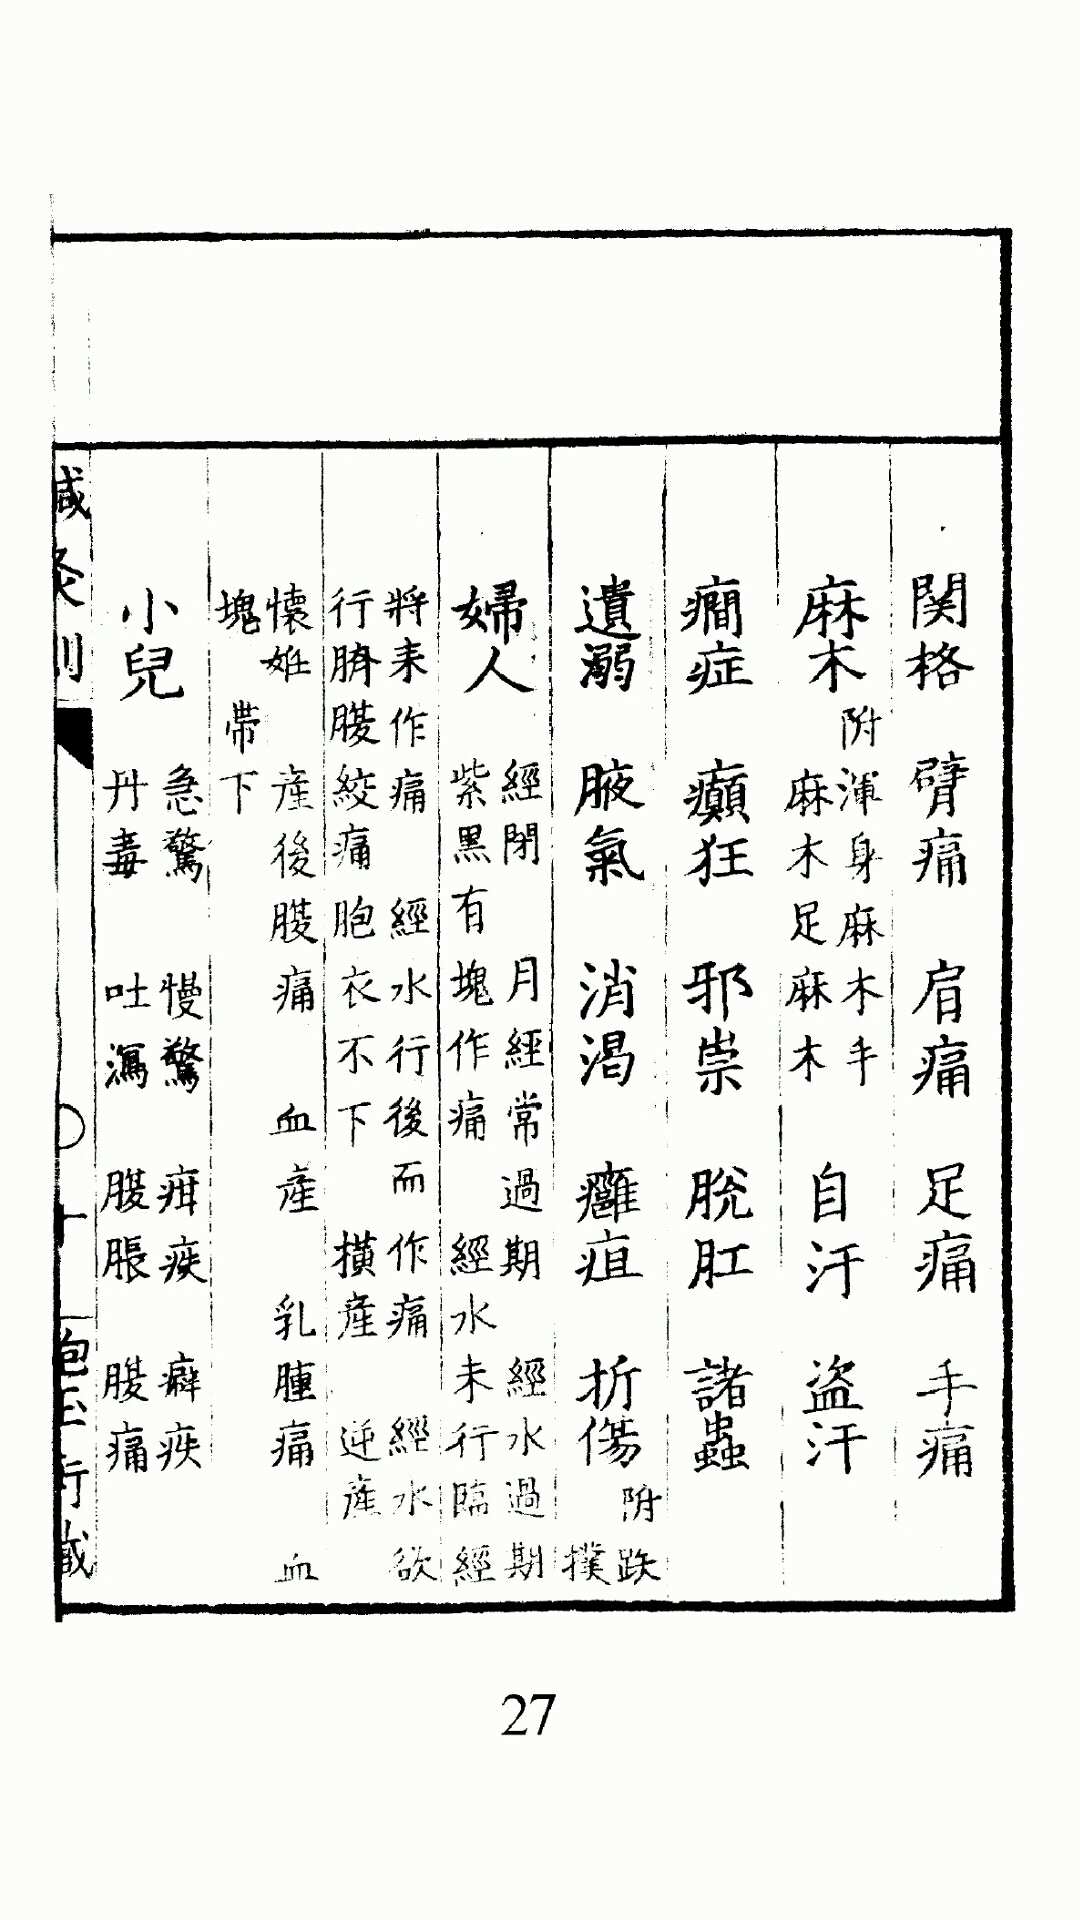 関格　臂痛　肩痛　足痛　手痛
麻木　附渾身麻木手
麻木足麻木　自汗　盗汗
癇症　癲狂　邪祟　脱肛　諸蟲
遺溺　腋氣　消渇　癰疽　折傷　附跌
撲
婦人　經閉　月經常過期　經水過期
紫黑有塊作痛　經水未行臨經
將来作痛　經水行後而作痛　經水欲
行臍腹絞痛　胞衣不下　横産　逆産
懐姙　産後腹痛　血産　乳腫痛　血
塊　帯下
小兒　急驚　慢驚　疳疾　癖疾
丹毒　吐瀉　腹脹　腹痛
鍼灸則　〇十　抱玉
27